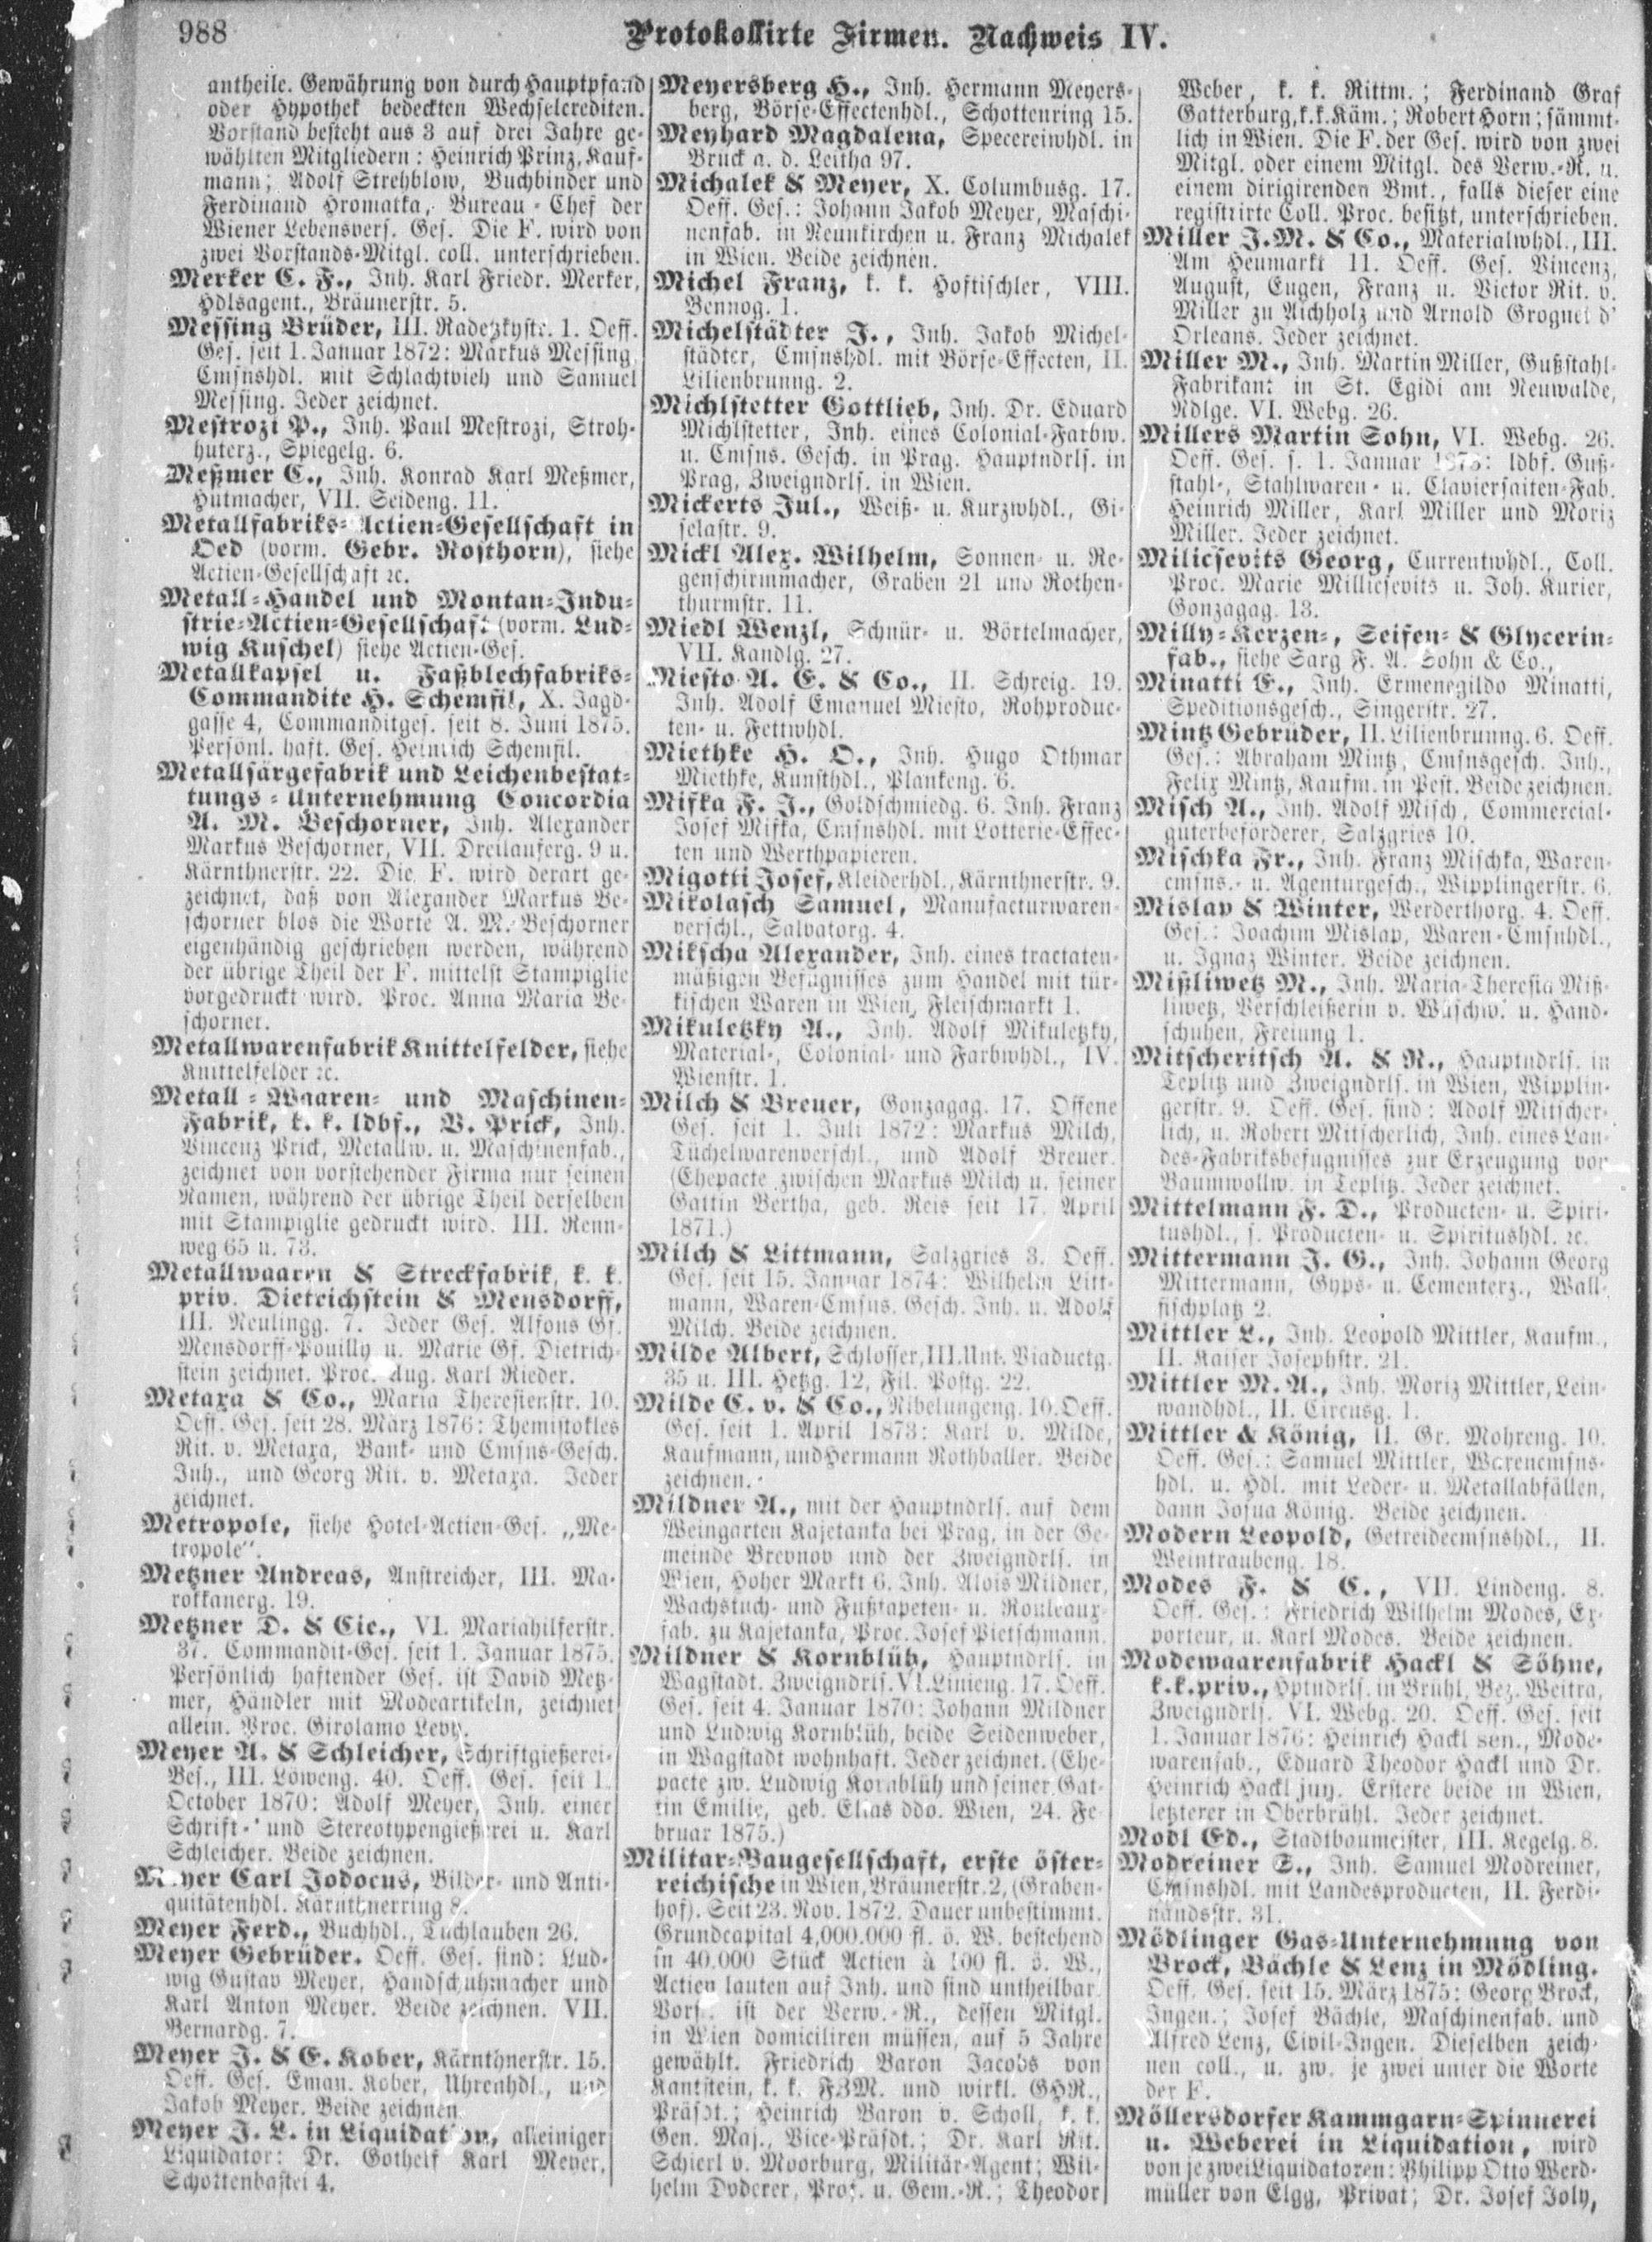 988
Protokollirte Firmen. Nachweis IV.
antheile. Gewährung von durch Hauptpfand
oder Hypothek bedeckten Wechselcrediten.
Vorstand besteht aus 3 auf drei Jahre ge-
wählten Mitgliedern: Heinrich Prinz, Kauf-
mann; Adolf Strehblow, Buchbinder und
Ferdinand Hromatka, Bureau-Chef der
Wiener Lebensvers. Ges. Die F. wird von
zwei Vorstands-Mitgl. coll. unterschrieben.
Merker C. F., Inh. Karl Friedr. Merker,
Hdlsagent., Bräunerstr. 5.
Messing Brüder, III. Radetzkystr. 1. Oeff.
Ges. seit 1. Januar 1872: Markus Messing,
Cmsnshdl. mit Schlachtvieh und Samuel
Messing. Jeder zeichnet.
Mestrozi P., Inh. Paul Mestrozi, Stroh-
huterz., Spiegelg. 6.
Meßmer C., Inh. Konrad Karl Meßmer,
Hutmacher, VII. Seideng. 11.
Metallfabriks-Actien-Gesellschaft in
Oed (vorm. Gebr. Rosthorn), siehe
Actien-Gesellschaft ꝛc.
Metall-Handel und Montan-Indu-
strie-Actien-Gesellschaft (vorm. Lud-
wig Kuschel) siehe Actien-Ges.
Metallkapsel u. Faßblechfabriks-
Commandite H. Schemfil, X. Jagd-
gasse 4, Commanditges. seit 8. Juni 1875.
Persönl. haft. Ges. Heinrich Schemfil.
Metallsärgefabrik und Leichenbestat-
tungs-Unternehmung Concordia
A. M. Beschorner, Inh. Alexander
Markus Beschorner, VII. Dreilauferg. 9 u.
Kärnthnerstr. 22. Die F. wird derart ge-
zeichnet, daß von Alexander Markus Be-
schorner blos die Worte A. M. Beschorner
eigenhändig geschrieben werden, während
der übrige Theil der F. mittelst Stampiglie
vorgedruckt wird. Proc. Anna Maria Be-
schorner.
Metallwarenfabrik Knittelfelder, siehe
Knittelfelder ꝛc.
Metall-Waaren- und Maschinen-
Fabrik, k. k. ldbf., V. Prick, Inh.
Vincenz Prick, Metallw. u. Maschinenfab.,
zeichnet von vorstehender Firma nur seinen
Namen, während der übrige Theil derselben
mit Stampiglie gedruckt wird. III. Renn-
weg 65 u. 73.
Metallwaaren & Streckfabrik, k. k.
priv. Dietrichstein & Mensdorff,
III. Neulingg. 7. Jeder Ges. Alfons Gf.
Mensdorff-Pouilly u. Marie Gf. Dietrich-
stein zeichnet. Proc. Aug. Karl Rieder.
Metaxa & Co., Maria Theresienstr. 10.
Oeff. Ges. seit 28. März 1876: Themistokles
Rit. v. Metaxa, Bank- und Cmsns-Gesch.
Inh., und Georg Rit. v. Metaxa. Jeder
zeichnet.
Metropole, siehe Hotel-Actien-Ges. „Me-
tropole“.
Metzner Andreas, Anstreicher, III. Ma-
rokkanerg. 19.
Metzner D. & Cie., VI. Mariahilferstr.
37. Commandit-Ges. seit 1. Januar 1875.
Persönlich haftender Ges. ist David Metz-
mer, Händler mit Modeartikeln, zeichnet
allein. Proc. Girolamo Levy.
Meyer A. & Schleicher, Schriftgießerei-
Bes., III. Löweng. 40. Oeff. Ges. seit 1.
October 1870: Adolf Meyer, Inh. einer
Schrift- und Stereotypengießerei u. Karl
Schleicher. Beide zeichnen.
Meyer Carl Jodocus, Bilder- und Anti-
quitätenhdl. Kärnthnerring 8.
Meyer Ferd., Buchhdl., Tuchlauben 26.
Meyer Gebrüder. Oeff. Ges. sind: Lud-
wig Gustav Meyer, Handschuhmacher und
Karl Anton Meyer. Beide zeichnen. VII.
Bernardg. 7.
Meyer J. & E. Kober, Kärnthnerstr. 15.
Oeff. Ges. Eman. Kober, Uhrenhdl., und
Jakob Meyer. Beide zeichnen.
Meyer J. L. in Liquidation, alleiniger
Liquidator: Dr. Gothelf Karl Meyer,
Schottenbastei 4.
Meyersberg H., Inh. Hermann Meyers-
berg, Börse-Effectenhdl., Schottenring 15.
Meyhard Magdalena, Specereiwhdl. in
Bruck a. d. Leitha 97.
Michalek & Meyer, X. Columbusg. 17.
Oeff. Ges.: Johann Jakob Meyer, Maschi-
nenfab. in Neunkirchen u. Franz Michalek
in Wien. Beide zeichnen.
Michel Franz, k. k. Hoftischler, VIII.
Bennog. 1.
Michelstädter J., Inh. Jakob Michel-
städter, Cmsnshdl. mit Börse-Effecten, II.
Lilienbrunng. 2.
Michlstetter Gottlieb, Inh. Dr. Eduard
Michlstetter, Inh. eines Colonial-Farbw.
u. Cmsns. Gesch. in Prag. Hauptndrls. in
Prag, Zweigndrls. in Wien.
Mickerts Jul., Weiß- u. Kurzwhdl., Gi-
selastr. 9.
Mickl Alex. Wilhelm, Sonnen- u. Re-
genschirmmacher, Graben 21 und Rothen-
thurmstr. 11.
Miedl Wenzl, Schnür- u. Börtelmacher,
VII. Kandlg. 27.
Miesto A. E. & Co., II. Schreig. 19.
Inh. Adolf Emanuel Miesto, Rohproduc-
ten- u. Fettwhdl.
Miethke H. O., Inh. Hugo Othmar
Miethke, Kunsthdl., Plankeng. 6.
Mifka F. J., Goldschmiedg. 6. Inh. Franz
Josef Mifka, Cmsnshdl. mit Lotterie-Effec-
ten und Werthpapieren.
Migotti Josef, Kleiderhdl., Kärnthnerstr. 9.
Mikolasch Samuel, Manufacturwaren-
verschl., Salvatorg. 4.
Mikscha Alexander, Inh. eines tractaten-
mäßigen Befugnisses zum Handel mit tür-
kischen Waren in Wien, Fleischmarkt 1.
Mikuletzky A., Inh. Adolf Mikuletzky,
Material-, Colonial- und Farbwhdl., IV.
Wienstr. 1.
Milch & Breuer, Gonzagag. 17. Offene
Ges. seit 1. Juli 1872: Markus Milch,
Tüchelwarenverschl., und Adolf Breuer.
(Ehepacte zwischen Markus Milch u. seiner
Gattin Bertha, geb. Reis seit 17. April
1871.)
Milch & Littmann, Salzgries 3. Oeff.
Ges. seit 15. Januar 1874: Wilhelm Litt-
mann, Waren-Cmsns. Gesch. Inh. u. Adolf
Milch. Beide zeichnen.
Milde Albert, Schlosser, III. Unt. Viaductg.
35 u. III. Hetzg. 12, Fil. Postg. 22.
Milde C. v. & Co., Nibelungeng. 10. Oeff.
Ges. seit 1. April 1873: Karl v. Milde,
Kaufmann, und Hermann Rothballer. Beide
zeichnen.
Mildner A., mit der Hauptndrls. auf dem
Weingarten Kajetanka bei Prag, in der Ge-
meinde Brevnov und der Zweigndrls. in
Wien, Hoher Markt 6. Inh. Alois Mildner,
Wachstuch- und Fußtapeten- u. Rouleaux-
fab. zu Kajetanka, Proc. Josef Pietschmann.
Mildner & Kornblüh, Hauptndrls. in
Wagstadt. Zweigndrls. VI. Linieng. 17. Oeff.
Ges. seit 4. Januar 1870: Johann Mildner
und Ludwig Kornblüh, beide Seidenweber,
in Wagstadt wohnhaft. Jeder zeichnet. (Ehe-
pacte zw. Ludwig Kornblüh und seiner Gat-
tin Emilie, geb. Elias ddo. Wien, 24. Fe-
bruar 1875.)
Militär-Baugesellschaft, erste öster-
reichische in Wien, Bräunerstr. 2, (Graben-
hof). Seit 23. Nov. 1872. Dauer unbestimmt.
Grundcapital 4,000.000 fl. ö. W. bestehend
in 40.000 Stück Actien à 100 fl. ö. W.,
Actien lauten auf Inh. und sind untheilbar.
Vorst. ist der Verw.-R., dessen Mitgl.
in Wien domiciliren müssen, auf 5 Jahre
gewählt. Friedrich Baron Jacobs von
Kantstein, k. k. FZM. und wirkl. GHR.,
Präsdt.; Heinrich Baron v. Scholl, k. k.
Gen. Maj., Vice-Präsdt.; Dr. Karl Rit.
Schierl v. Moorburg, Militär-Agent; Wil-
helm Doderer, Prof. u. Gem.-R.; Theodor
Weber, k. k. Rittm.; Ferdinand Graf
Gatterburg, k. k. Käm.; Robert Horn; sämmt-
lich in Wien. Die F. der Ges. wird von zwei
Mitgl. oder einem Mitgl. des Verw.-R. u.
einem dirigirenden Bmt., falls dieser eine
registrirte Coll. Proc. besitzt, unterschrieben.
Miller J. M. & Co., Materialwhdl., III.
Am Heumarkt 11. Oeff. Ges. Vincenz,
August, Eugen, Franz u. Victor Rit. v.
Miller zu Aichholz und Arnold Grognet d'
Orleans. Jeder zeichnet.
Miller M., Inh. Martin Miller, Gußstahl-
Fabrikant in St. Egidi am Neuwalde,
Ndlge. VI. Webg. 26.
Millers Martin Sohn, VI. Webg. 26.
Oeff. Ges. s. 1. Januar 1873: ldbf. Guß-
stahl-, Stahlwaren- u. Claviersaiten-Fab.
Heinrich Miller, Karl Miller und Moriz
Miller. Jeder zeichnet.
Milicsevits Georg, Currentwhdl., Coll.
Proc. Marie Millicsevits u. Joh. Kurier,
Gonzagag. 13.
Milly-Kerzen-, Seifen- & Glycerin-
fab., siehe Sarg F. A. Sohn & Co.,
Minatti E., Inh. Ermenegildo Minatti,
Speditionsgesch., Singerstr. 27.
Mintz Gebrüder, II. Lilienbrunng. 6. Oeff.
Ges.: Abraham Mintz, Cmsnsgesch. Inh.,
Felix Mintz, Kaufm. in Pest. Beide zeichnen.
Misch A., Inh. Adolf Misch, Commercial-
güterbeförderer, Salzgries 10.
Mischka Fr., Inh. Franz Mischka, Waren-
cmsns.- u. Agenturgesch., Wipplingerstr. 6.
Mislap & Winter, Werderthorg. 4. Oeff.
Ges.: Joachim Mislap, Waren-Cmsnhdl.,
u. Ignaz Winter. Beide zeichnen.
Mißliwetz M., Inh. Maria Theresia Miß-
liwetz, Verschleißerin v. Wäschw. u. Hand-
schuhen, Freiung 1.
Mitscheritsch A. & R., Hauptndrls. in
Teplitz und Zweigndrls. in Wien, Wipplin-
gerstr. 9. Oeff. Ges. sind: Adolf Mitscher-
lich, u. Robert Mitscherlich, Inh. eines Lan-
des-Fabriksbefugnisses zur Erzeugung vor
Baumwollw. in Teplitz. Jeder zeichnet.
Mittelmann F. D., Producten- u. Spiri-
tushdl., s. Producten- u. Spiritushdl. ꝛc.
Mittermann J. G., Inh. Johann Georg
Mittermann, Gyps- u. Cementerz., Wall-
fischplatz 2.
Mittler L., Inh. Leopold Mittler, Kaufm.,
II. Kaiser Josephstr. 21.
Mittler M. A., Inh. Moriz Mittler, Lein-
wandhdl., II. Circusg. 1.
Mittler & König, II. Gr. Mohreng. 10.
Oeff. Ges.: Samuel Mittler, Warencmsns-
hdl. u. Hdl. mit Leder- u. Metallabfällen,
dann Josua König. Beide zeichnen.
Modern Leopold, Getreidecmsnshdl., II.
Weintraubeng. 18.
Modes F. & C., VII. Lindeng. 8.
Oeff. Ges.: Friedrich Wilhelm Modes, Ex-
porteur, u. Karl Modes. Beide zeichnen.
Modewaarenfabrik Hackl & Söhne,
k. k. priv., Hptndrls. in Brühl, Bez. Weitra,
Zweigndrls. VI. Webg. 20. Oeff. Ges. seit
1. Januar 1876: Heinrich Hackl sen., Mode-
warenfab., Eduard Theodor Hackl und Dr.
Heinrich Hackl jun. Erstere beide in Wien,
letzterer in Oberbrühl. Jeder zeichnet.
Modl Ed., Stadtbaumeister, III. Kegelg. 8.
Modreiner S., Inh. Samuel Modreiner,
Cmsnshdl. mit Landesproducten, II. Ferdi-
nandsstr. 31.
Mödlinger Gas-Unternehmung von
Brock, Bächle & Lenz in Mödling.
Oeff. Ges. seit 15. März 1875: Georg Brock,
Ingen.; Josef Bächle, Maschinenfab. und
Alfred Lenz, Civil-Ingen. Dieselben zeich-
nen coll., u. zw. je zwei unter die Worte
der F.
Möllersdorfer Kammgarn-Spinnerei
u. Weberei in Liquidation, wird
von je zwei Liquidatoren: Philipp Otto Werd-
müller von Elgg, Privat; Dr. Josef Joly,